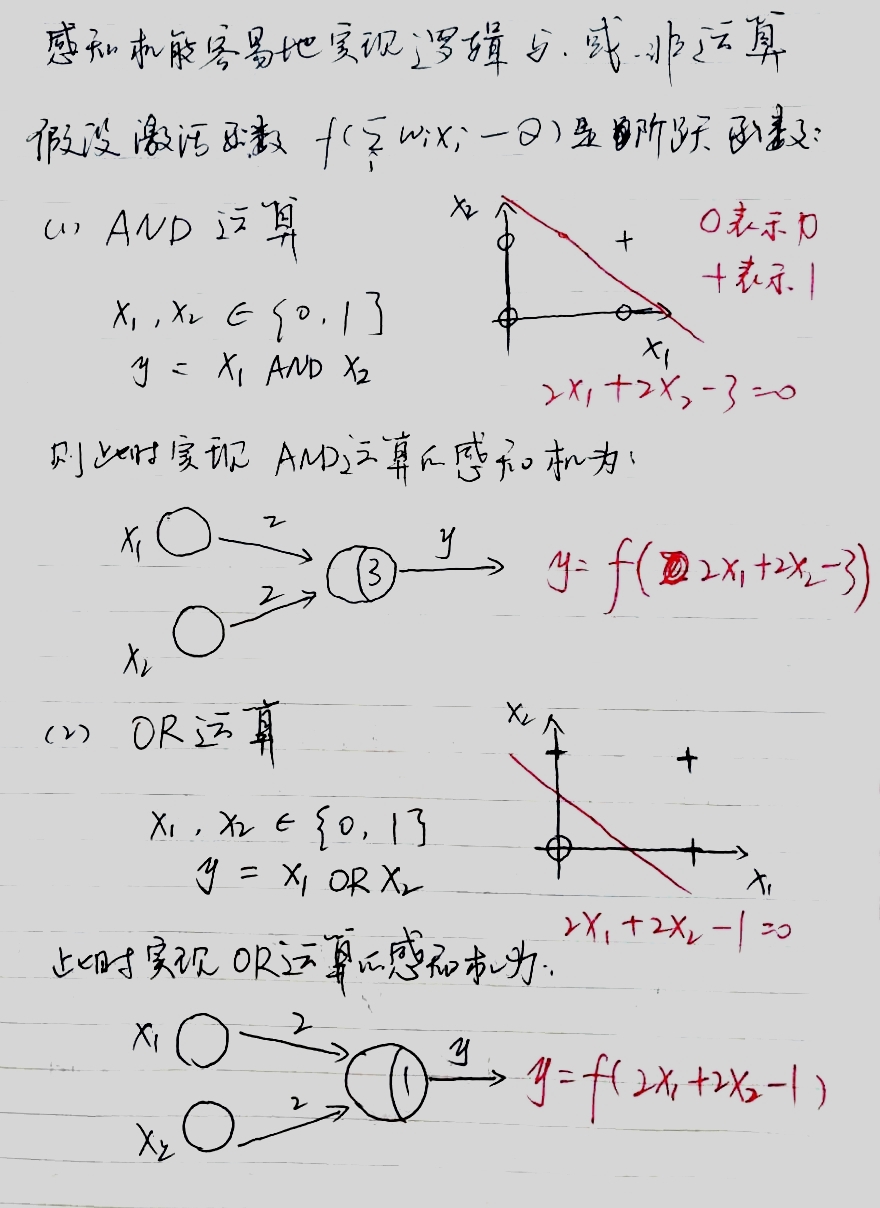 感知机能容易地实现逻辑与、或、非运算
假设激活函数 f(∑ᵢ wᵢxᵢ - θ)是阶跃函数:
(1) AND 运算
x₁, x₂ ∈ {0, 1}
y = x₁ AND x₂
x₂
x₁
O表示0
+表示1
2x₁+2x₂-3=0
则此时实现 AND运算的感知机为:
x₁
2
x₂
2
3
y
y=f(2x₁+2x₂-3)
(2) OR运算
x₁, x₂ ∈ {0, 1}
y = x₁ OR x₂
x₂
x₁
2x₁+2x₂-1=0
此时实现 OR运算的感知机为:
x₁
2
x₂
2
1
y
y=f(2x₁+2x₂-1)